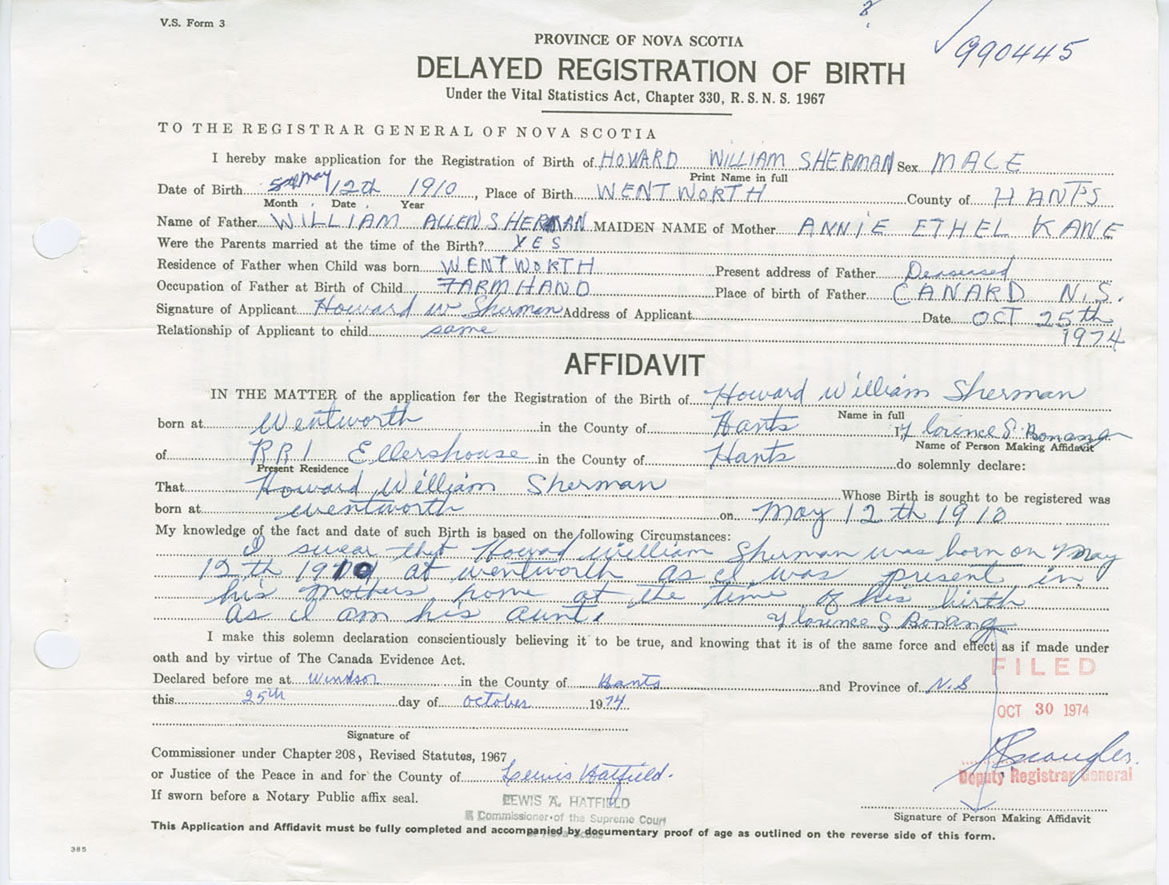 V.S. Form 3
990445
PROVINCE OF NOVA SCOTIA
DELAYED REGISTRATION OF BIRTH
Under the Vital Statistics Act, Chapter 330, R. S. N. S. 1967
TO THE REGISTRAR GENERAL OF NOVA SCOTIA
I hereby make application for the Registration of Birth of HOWARD WILLIAM SHERMAN Sex MALE
Print Name in full
Date of Birth May 12th 1910, Place of Birth WENTWORTH County of HANTS
Month Date Year
Name of Father WILLIAM ALLEN SHERMAN MAIDEN NAME of Mother ANNIE ETHEL KANE
Were the Parents married at the time of the Birth? YES
Residence of Father when Child was born WENTWORTH Present address of Father Deaseased
Occupation of Father at Birth of Child FARM HAND Place of birth of Father CANARD N.S.
Signature of Applicant Howard W Sherman Address of Applicant Date OCT 25th
1974
Relationship of Applicant to child same
AFFIDAVIT
IN THE MATTER of the application for the Registration of the Birth of Howard William Sherman
Name in full
born at Wentworth in the County of Hants I Florence S Bonang
Name of Person Making Affidavit
of RR1 Ellershouse in the County of Hants do solemnly declare:
Present Residence
That Howard William Sherman Whose Birth is sought to be registered was
born at wentworth on May 12th 1910
My knowledge of the fact and date of such Birth is based on the following Circumstances:
I swear that Howard William Sherman was born on May
12th 1910 at wentworth as I was present in
his mothers home at the time of his birth
as I am his aunt. Florence S Bonang
I make this solemn declaration conscientiously believing it to be true, and knowing that it is of the same force and effect as if made under
oath and by virtue of The Canada Evidence Act.
FILED
Declared before me at Windsor in the County of Hants and Province of N.S
this 25th day of October 1974
OCT 30 1974
Signature of
Commissioner under Chapter 208, Revised Statutes, 1967
or Justice of the Peace in and for the County of Lewis Hatfield.
Deputy Registrar General
If sworn before a Notary Public affix seal.
LEWIS A. HATFIELD
A Commissioner of the Supreme Court
Signature of Person Making Affidavit
This Application and Affidavit must be fully completed and accompanied by documentary proof of age as outlined on the reverse side of this form.
385